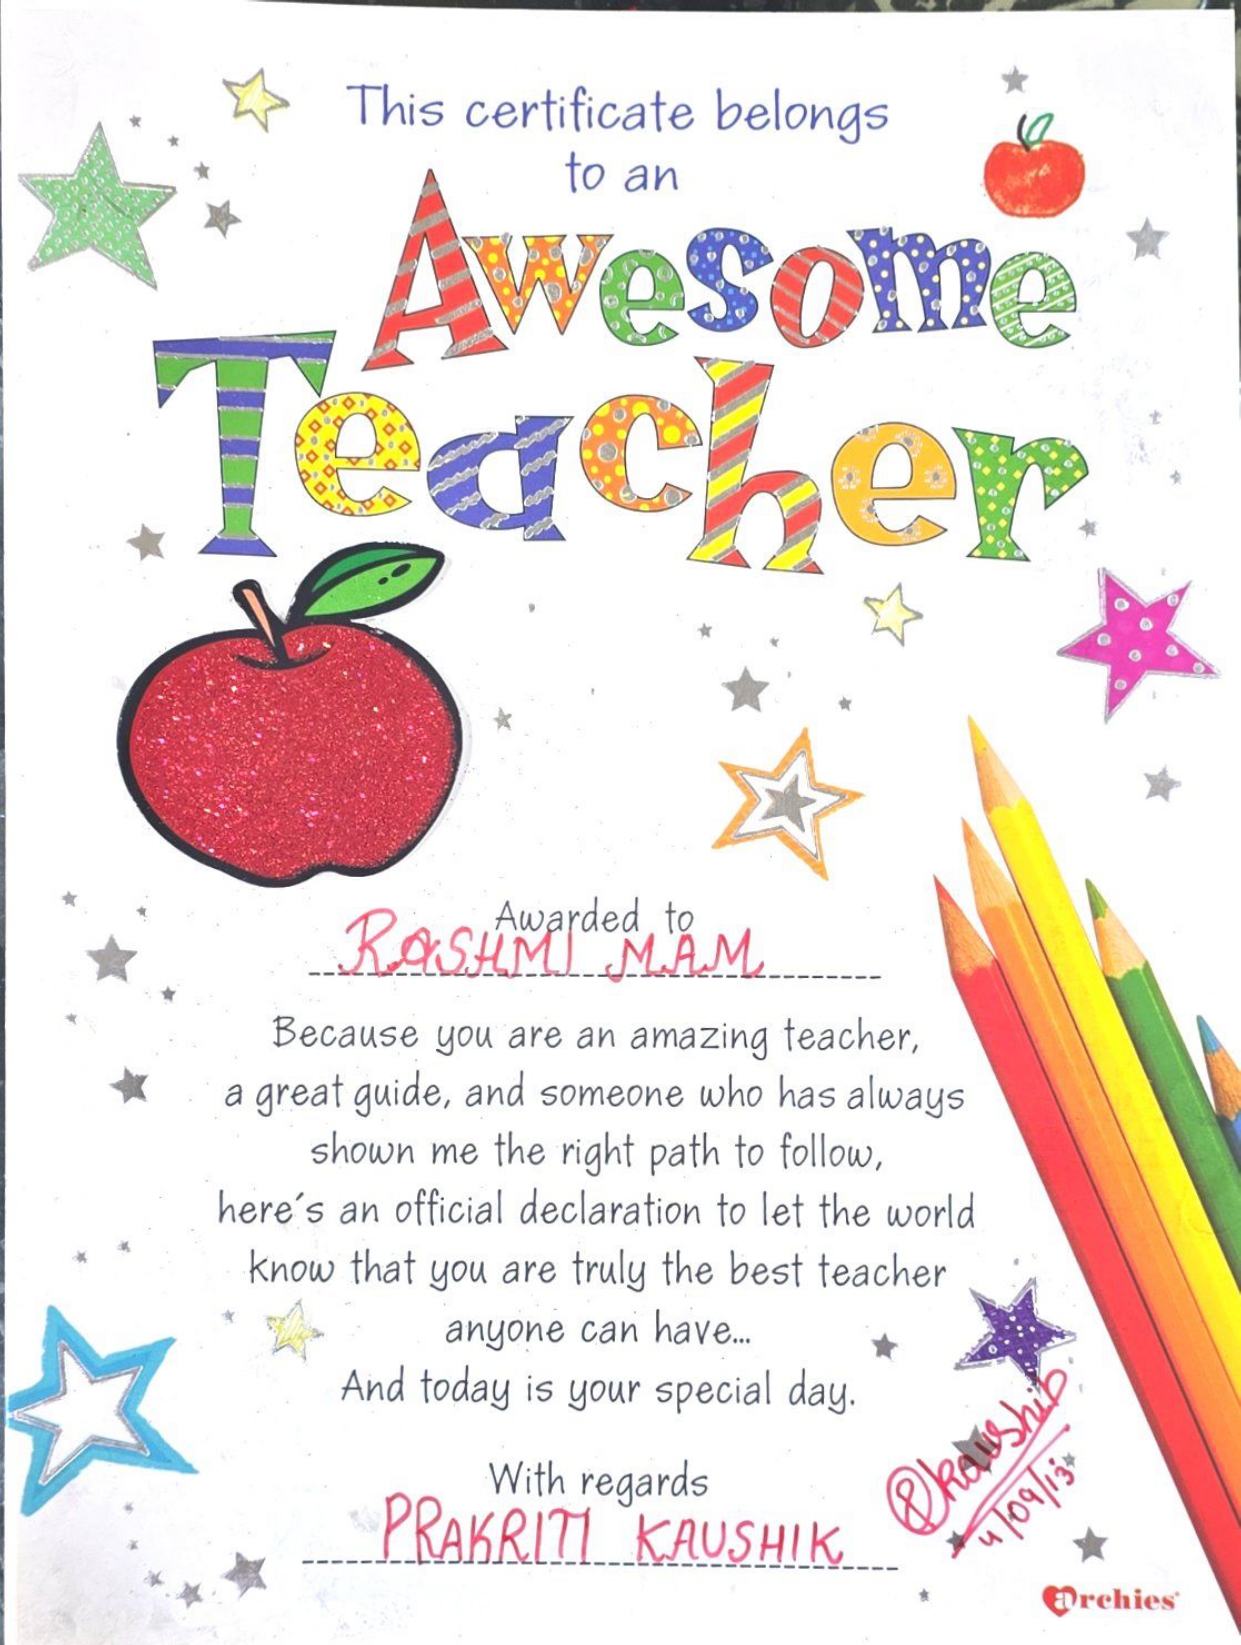 This certificate belongs
to an
Awesome
Teacher
Awarded to
RaSHMI MAM
Because you are an amazing teacher,
a great guide, and someone who has always
shown me the right path to follow,
here's an official declaration to let the world
know that you are truly the best teacher
anyone can have...
And today is your special day.
With regards
PRAKRITI KAUSHIK
Pkaushik
4/09/13
archies